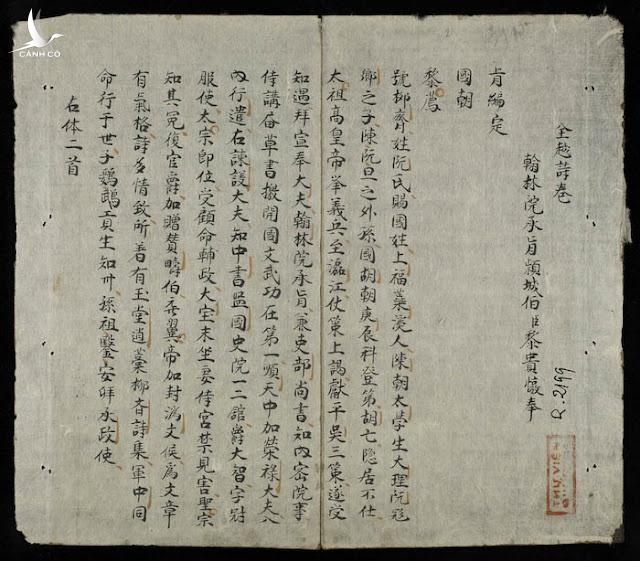 CÁNH CÒ
全越詩卷
翰林院承旨潁城伯臣黎貴惇奉
旨編定
國朝
黎廌
號抑齋姓阮氏賜國姓上福蘂溪人陳朝太學生大理阮飛
卿之子陳阮旦之外孫國胡朝庚辰科登第胡亡隐居不仕
太祖高皇帝举義兵至瀘江仗策上謁獻平吳三策遂受
知遇拜宣奉大夫翰林院承旨兼吏部尚書知內密院事
侍講草書檄開國文武功在第一順天中加榮禄大夫入
內行遣右諫議大夫知中書監國史院一三舘爵大智字冠
服使太宗即位受顧命輔政大宝末坐妻侍宮禁見害聖宗
知其冤復官爵加贈賛疇伯翼帝加封濟文侯爲文章
有氣格詩多情致所着有玉堂遺藁抑斉詩集軍中詞
命行于世子鸚鵡貢生知州孫祖鑒安拜承政使
右体二首
R.2199
THƯ VIỆN